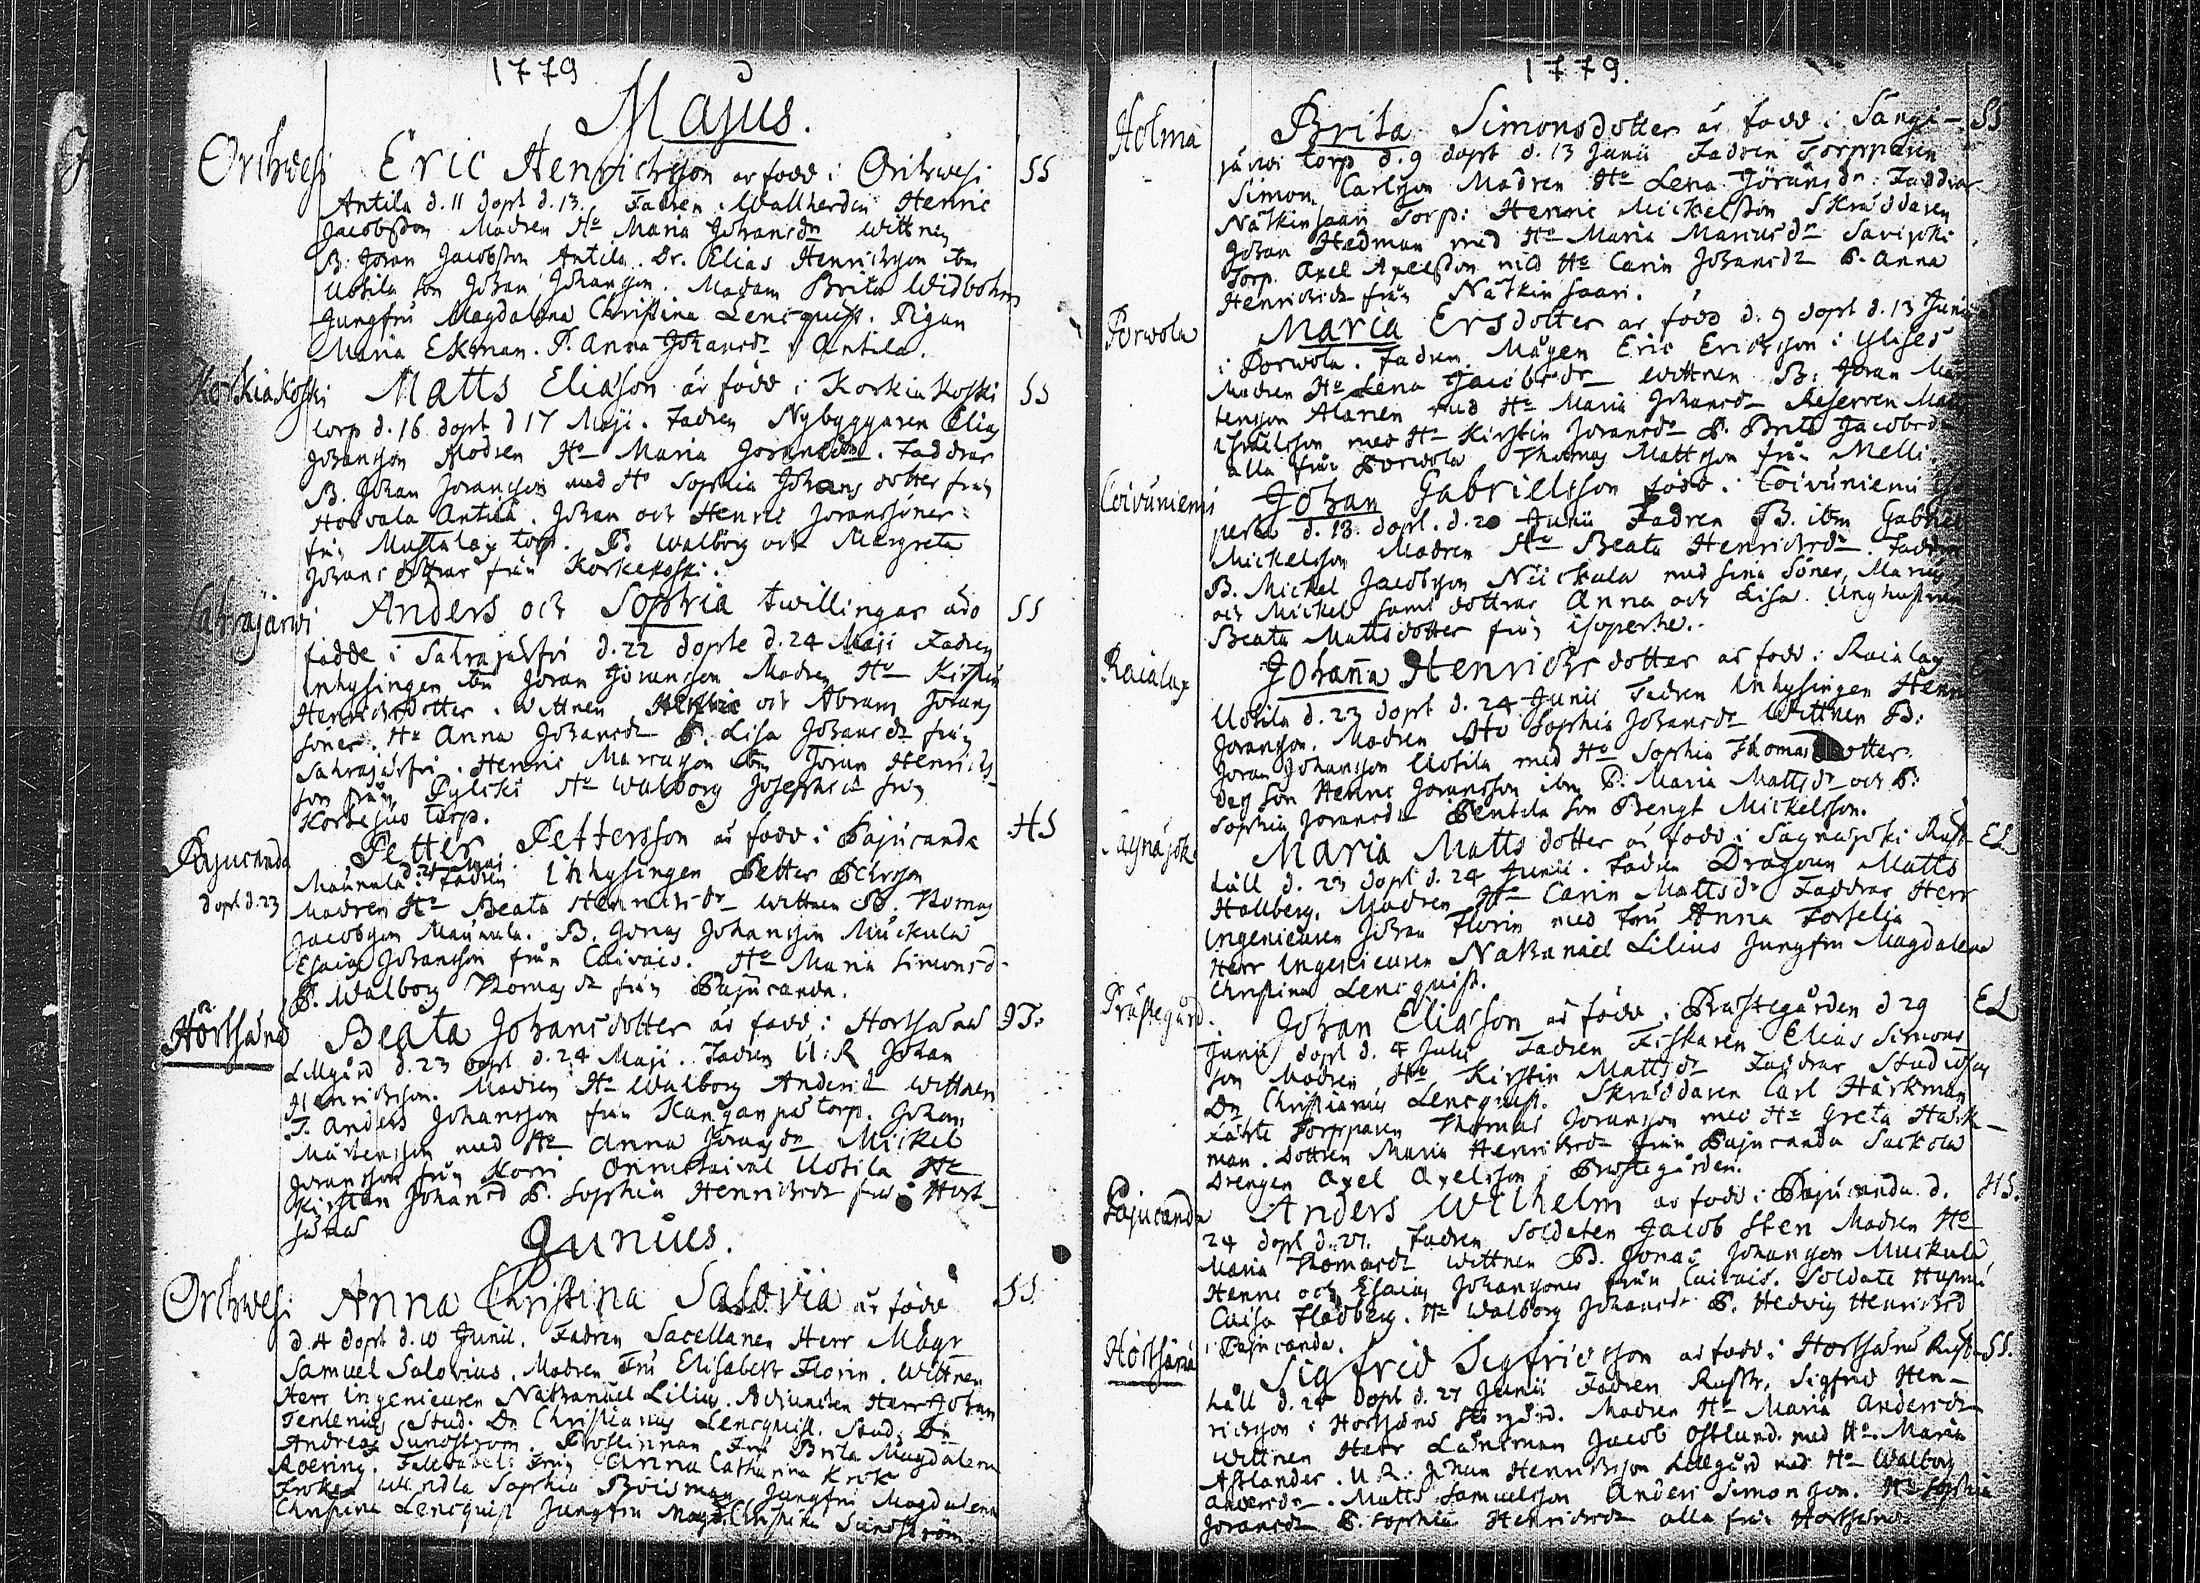 1779
Majus.
Orihwesi Eric Henrichsson är född i Orihwesi SS
Antila d. 11 döpt d. 13. Fadren Wallherden Henric
Jacobsson Modren Ho Maria Johansdr Wittnen
B. Jöran Jacobsson Antila. Dr. Elias Henrichsson ibm
Uotila son Johan Johansson. Madam Brita Widbohm
Jungfru Magdalena Christina Lencquist. Pigan
Maria Ekman. P. Anna Johansdr i Antila.
Korkiakoski Matts Eliasson är född i Korkiakoski SS
torp d. 16 döpt d 17 Maji. Fadren Nybyggaren Elias
Johansson Modren Ho Maria Göransdr. Faddrar
B. Johan Joransson med Ho Sophia Johans dotter från
Antila. Johan och Henric Joranssöner
från torp. P. Walborg och Margreta
Johans döttrar från Korkekoski.
Sahrajärwi Anders och Sophia twillingar äro SS
födde i Sahrajärfvi d. 22 döpte d. 24 Maji Fadren
Inhysingen ibm Joran Joransson Modren Ho Kirstin
Henrichsdotter. Wittnen Henric och Abram Jorans
söner. Ho Anna Johansdr P. Lisa Johansdr från
Sahrajärfvi. Henric Marcusson ibm Joran Henrichs-
son från Pyliski Ho Walborg Josephsdr från
torp.
Pajucanda Petter Pettersson är född i Pajucanda HS
d. 21 maj
döpt d. 23 Maunula. Fadren Inhysingen Petter Pehrsson
Modren Ho Beata Henrichsdr Wittnen B. Thomas
Jacobsson Maunula. B. Jonas Johansson Muckula
Esaias Johansson från Caivais. Ho Maria Simonsd
P. Walborg Thomasdr från Pajucanda.
Hörtsänä Beata Johansdotter är född i Hörtsänä JT.
Lillgård d. 23 döpt d. 24 Maji. Fadren U:R Johan
Henrichsson. Modren Ho Walborg Andersdr Wittnen
T. Anders Johansson från torp. Johan
Mårtensson med Ho Anna Joransdr Mickel
Joransson från Korri Uotila Ho
Kirstin Johansd P. Sophia Henrichsdr från Hört-
sänä
Junius.
Orihwesi Anna Christina Salovia är född SS.
d. 4 döpt d. 10 Junii. Fadren Sacellanen Herr Magr
Samuel Salovius. Modren Fru Elisabeth Florin. Wittnen
Herr Ingenieuren Nathanael Lilius. Adjuncten Herr Johan
Tenlenius Stud. Dn Christianus Lencquist. Stud. Dn
Andreas Sundström. Prostinnan Fru Brita Magdalena
Roering. Fru Anna Catharina Krok
Fröken Sophia Jungfru Magdalena
Christina Lencquist Jungfru Magd. Christina Sundström
1779.
Holma Brita Simonsdotter är född i Sängi- SS
järwi torp d. 9 döpt d. 13 Junii Fadren Torpparen
Simon Carlsson Modren Ho Lena Jöransdr. Faddrar
Nätkinsaari Torp: Henric Mickelsson Skräddaren
Johan Hedman med Ho Maria Marcusdr Savijoki
Torp. Axel Axelsson med Ho Carin Johansdr P. Anna
Henrichsdr från Nätkinsaari.
Porwola Maria Ersdotter är född d. 9 döpt d. 13 Junii
i Porwola. Fadren Mågen Eric Ericsson i
Modren Ho Lena Jacobsdr Wittnen B: Joran
tensson Alanen med Ho Maria Johansdr Reserven
Israelsson med Ho Kirstin Joransdr P. Brita Jacobsdr
alla från Porwola Thomas Mattsson från Melli.
Coivuniemi Johan Gabrielsson född i Coivuniemi
perhe d. 13. döpt. d. 20 Junii Fadren B. ibm Gabriel
Mickelsson Modren Ho Beata Henrichsdr. Faddrar
B. Mickel Jacobsson Nickula med sina Söner Marcus
och Mickel samt döttrar Anna och Lisa.
Beata Mattsdotter från isoperhe.
Raialax Johanna Henrichsdotter är född i Raialax
Uotila d. 23 döpt d. 24 Junii Fadren Inhysingen Henric
Joransson. Modren Ho Sophia Johansdr Wittnen B:
Joran Johansson Uotila med Ho Sophia Thomasdotter
des Son Henric Joransson ibm P. Maria Mattsdr och P.
Sophia Joransdr Pentila son Bengt Mickelsson.
Säynäjoki Maria Mattsdotter är född i Säynäjoki Rust- EL
håll d. 23 döpt d. 24 Junii. Fadren Dragoun Matts
Hallberg. Modren Ho Carin Mattsdr Faddrar Herr
Ingenieuren Johan Florin med Fru Anna Forselia
Herr Ingenieuren Nathanael Lilius Jungfru Magdalena
Christina Lencquist.
Prästegård. Johan Eliasson är född i Prästegården d 29 EL
Junii döpt d. 4 Julii Fadren Fiskaren Elias Simons
son Modren Ho Kirstin Mattsdr Faddrar Studiosus
Dn Christianus Lencquist. Skräddaren Carl Harkman
Torpparen Thomas Joransson med Ho Greta Hark-
man. Dottren Maria Henrichsdr från Pajucanda
Drengen Axel Axelsson i Prästegården.
Pajucanda Anders Wilhelm är född i Pajucanda d. HS.
24 döpt d. 27. Fadren Soldaten Jacob Sten Modren Ho
Maria Thomasdr Wittnen B. Jonas Johansson Muckula
Henric och Esaias Johanssöner från Caivais. Soldate Hustru
Caisa Flodberg. Ho Walborg Johansdr P. Hedvig Henrichsd
i Pajucanda.
Hörtsänä Sigfrid Sigfridsson är född i Hörtsänä Rust- SS.
håll d. 25 döpt d. 27 Junii Fadren Rustb. Sigfrid Hen-
richsson i Hörtsänä Storgård. Modren Ho Maria Andersdr
Wittnen Herr Länsman Jacob Östlund med Ho Maria
Astlander. U.R. Johan Henrichsson Lillgård med Ho Walborg
Andersdr. Matts Samuelsson Anders Simonsson. Ho Sophia
Joransdr P. Sophia Henrichsdr alla från Hörtsänä.